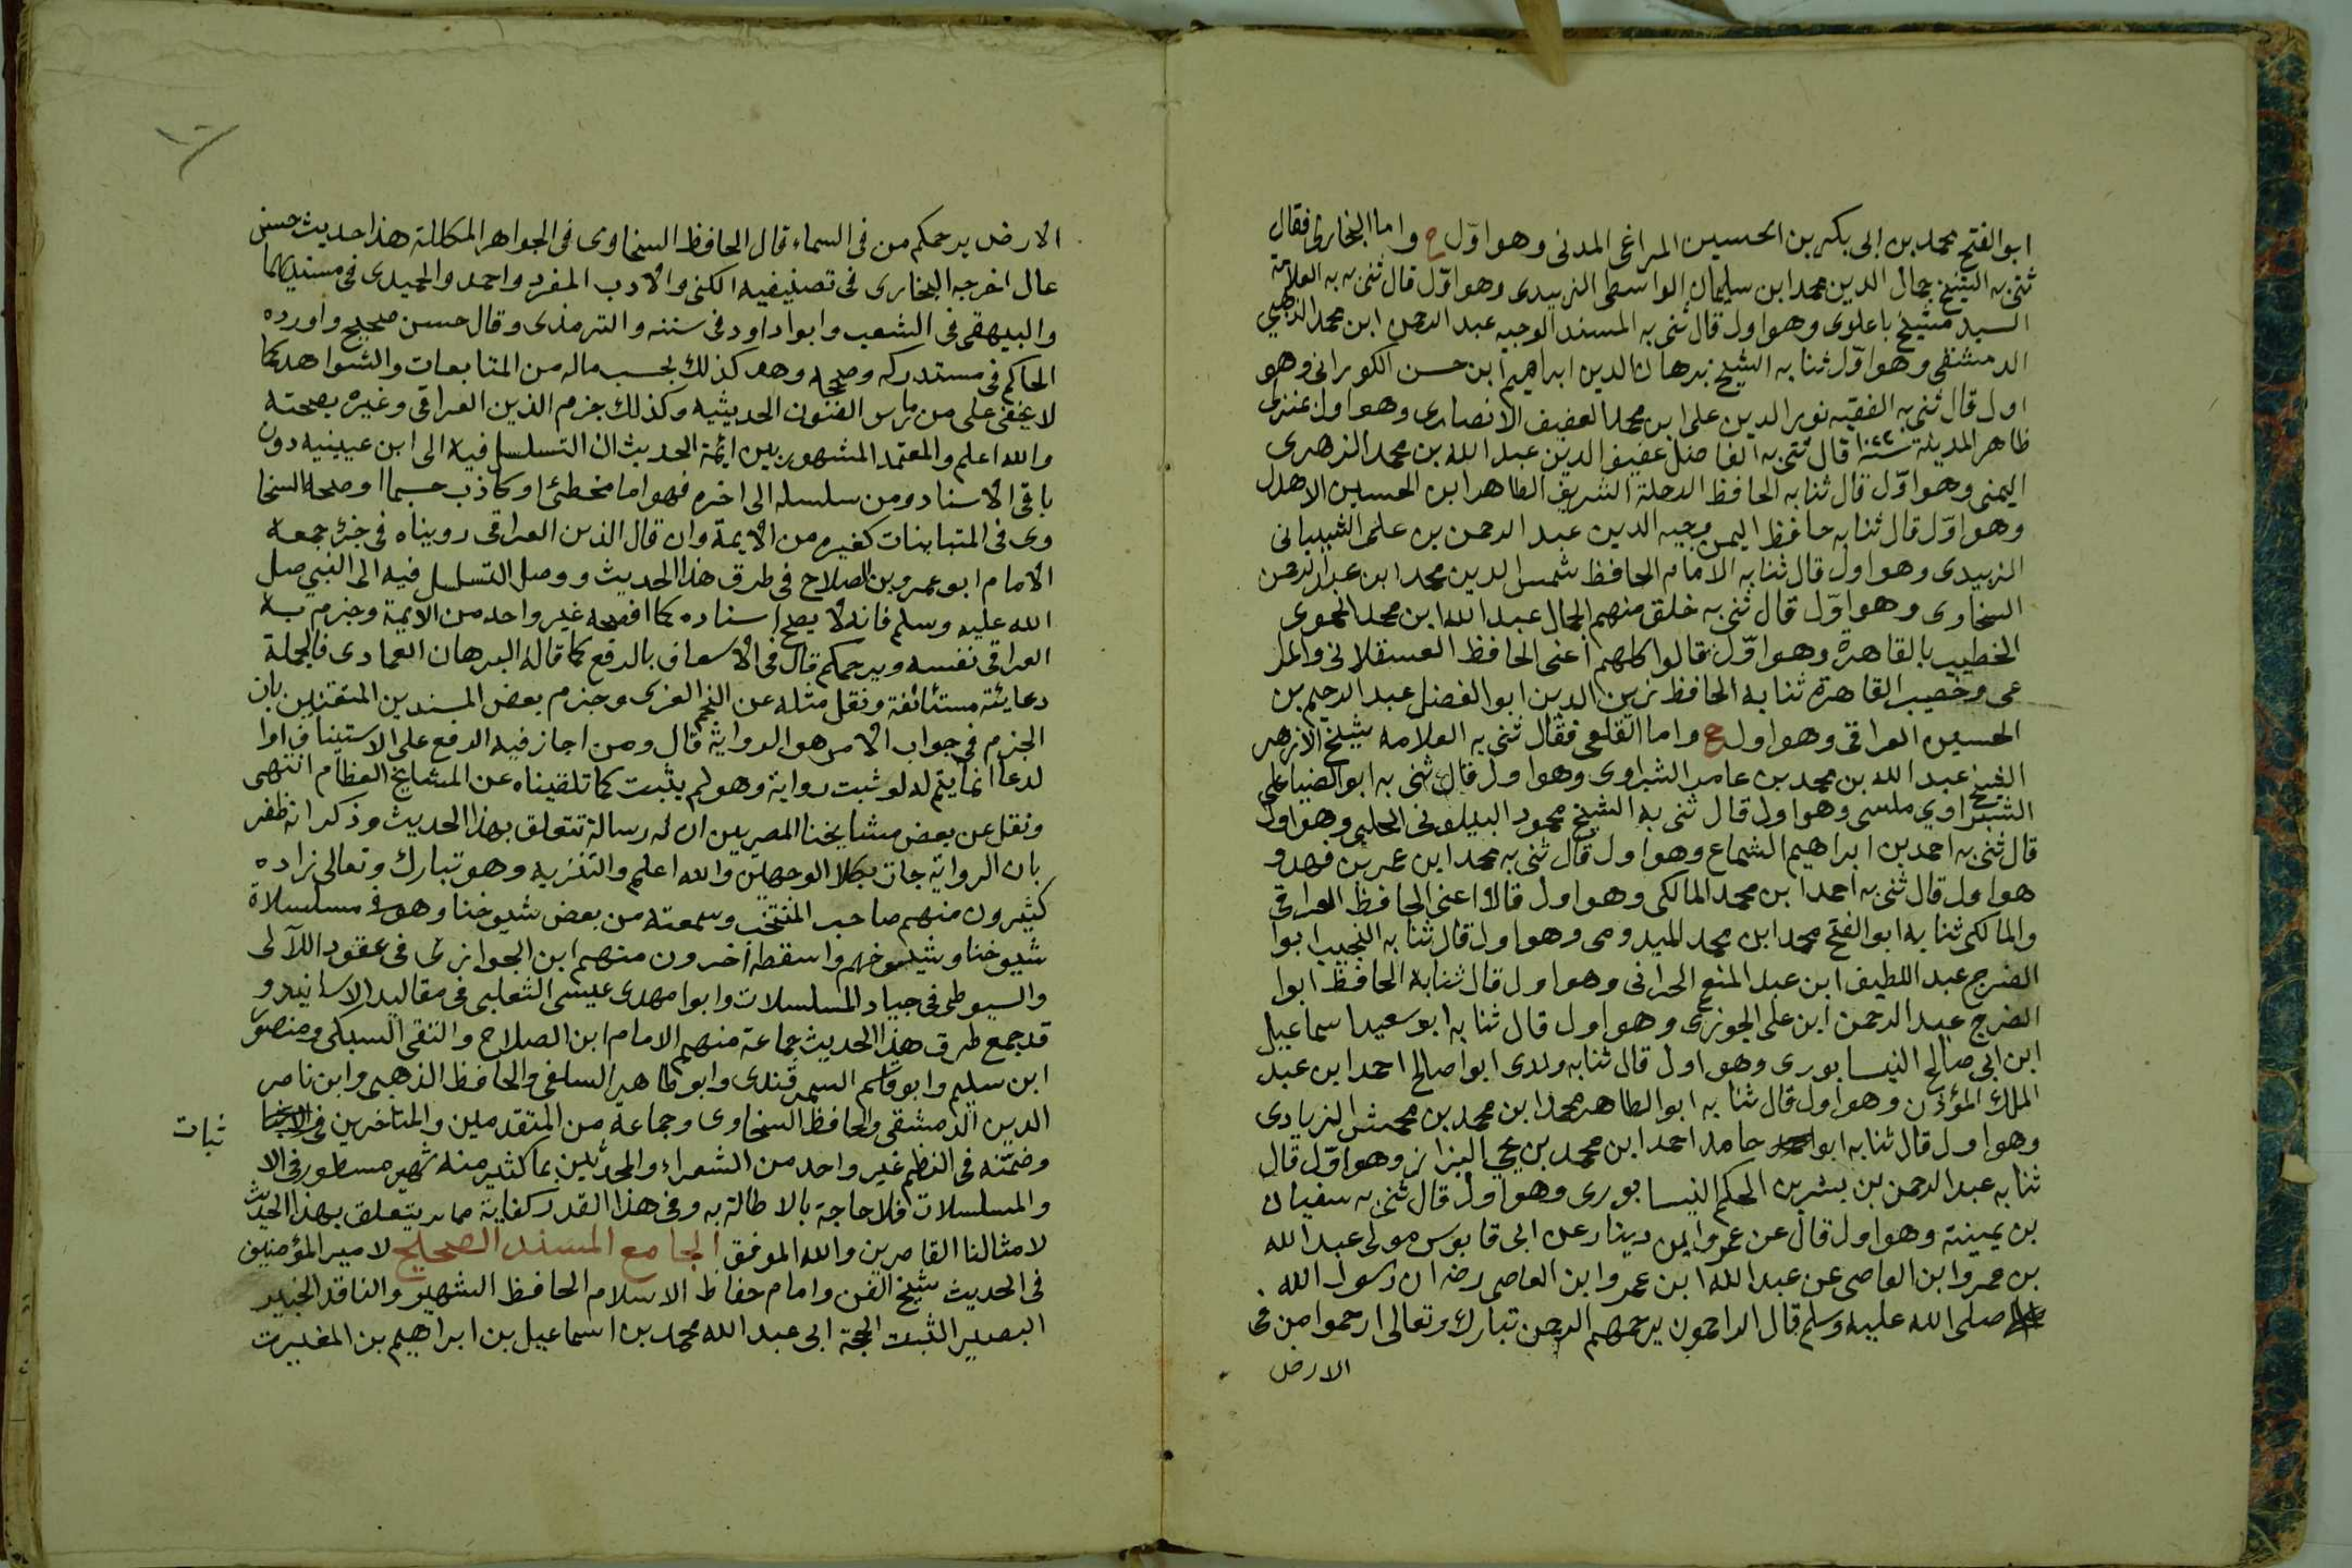 ابو الفتح محمد بن ابى بكر بن الحسين المراغى المدنى وهو اوّل ح واما البخارى فقال
ثنى به الشيخ جمال الدين محمد ابن سليمان الواسطى الزبيدى وهو اوّل قال ثنى به به العلامة
السيد مشيخ باعلوى وهو اول قال ثنى به المسند الوجيه عبد الرحمن ابن محمد الذهبي
الدمشقى وهو اوّل ثنا به الشيخ برهان الدين ابراهيم ابن حسن الكورانى وهو
اول قال ثنى به الفقيه نور الدين على ابن محمد العفيف الانصارى وهو اول
ظاهر المدينة قال ثنى به الفاضل عفيف الدين عبد الله بن محمد الزهرى
اليمنى وهو اوّل قال ثنا به الحافظ الرحلة الشريف الطاهر ابن الحسين الاهدل
وهو اوّل قال ثنا به حافظ اليمن وجيه الدين عبد الرحمن بن على الشيبانى
الزبيدى وهو اول قال ثنا به الامام الحافظ شمس الدين محمد ابن عبد الرحمن
السخاوى وهو اوّل قال ثنى به خلق منهم الجمال عبد الله ابن محمد الحموى
الخطيب بالقاهرة وهو اوّل قالوا كلهم اعنى الحافظ العسقلانى والمر
غى وخصيب القاهرة ثنا به الحافظ زين الدين ابو الفضل عبد الرحيم بن
الحسين العراقى وهو اول ح واما القلعى فقال ثنى به العلامه شيخ الازهر
الشيخ عبد الله بن محمد بن عامر الشبراوى وهو اول قال ثنى به ابو الضيا على
الشبراوي ملسى وهو اول قال ثنى به الشيخ محمود البيلونى الحلبى وهو اول
قال ثنى به احمد بن ابراهيم الشماع وهو اول قال ثنى به محمد ابن عمر بن فهد و
هو اول قال ثنى به احمد ابن محمد المالكى وهو اول قالا اعنى الحافظ العراقى
والمالكى ثنا به ابو الفتح محمد ابن محمد الميدومى وهو اول قال ثنا به النجيب ابوا
الفرج عبد اللطيف ابن عبد المنعم الحرانى وهو اول قال ثنا به الحافظ ابوا
الفرج عبد الرحمن ابن على الجوزى وهو اول قال ثنا به ابو سعيد اسماعيل
ابن ابى صالح النيسابورى وهو اول قال ثنا به ولدى ابوا صالح احمد ابن عبد
الملك المؤذن وهو اول قال ثنا به ابو الطاهر محمد ابن محمد بن محمش الزيادى
وهو اول قال ثنا به ابوا حامد احمد ابن محمد بن يحيى البزاز وهو اوّل قال
ثنا به عبد الرحمن بن بشر بن الحكم النيسابورى وهو اول قال ثنى به سفيان
بن عيينة وهو اول قال عن عمرو ابن دينار عن ابى قابوس مولى عبد الله
بن عمرو ابن العاصى عن عبد الله ابن عمرو ابن العاصى رضه ان رسول الله
صلى الله عليه وسلم قال الراحمون يرحمهم الرحمن تبارك وتعالى ارحموا من فى
الارض
الارض يرحمكم من فى السماء قال الحافظ السخاوى فى الجواهر المكللة هذا حديث حسن
عال اخرجه البخارى فى تصنيفيه الكنى والادب المفرد واحمد والحميدى فى مسنديهما
والبيهقى فى الشعب وابوا داود فى سننه والترمذى وقال حسن صحيح واورده
الحاكم فى مستدركه وصححه وهو كذلك بحسب ماله من المتابعات والشواهد كما
لا يخفى على من مارس الفنون الحديثيه وكذلك جزم الذين العراقى وغيره بصحته
والله اعلم والمعتمد المشهور بين ائمة الحديث ان التسلسل فيه الى ابن عيينيه دون
باقى الاسناد ومن سلسله الى اخره فهو اما مخطئ او كاذب حسبما اوضحه السخا
وى فى المتباينات كغيره من الايمة وان قال الذين العراقى رويناه فى جزء جمعه
الامام ابو عمرو بن الصلاح فى طرق هذا الحديث ووصل التسلسل فيه الى النبي صلى
الله عليه وسلم فانه لا يصح اسناده كما افصحه غير واحد من الايمة وجزم به
العراقى نفسه ويرحمكم قال فى الاسعاف بالرفع كما قاله البرهان العمادى فالجملة
دعايئة مستئانفة ونقل مثله عن النجم الغزى وجزم بعض المسندين المتقنين بان
الجزم فى جواب الامر هو الرواية قال ومن اجاز فيه الرفع على الاستيناف اوا
لدعا انما يتم له لو ثبت رواية وهو لم يثبت كما تلقيناه عن المشايخ العظام انتهى
ونقل عن بعض مشايخنا المصريين ان له رسالة تتعلق بهذا الحديث وذكر انه ظفر
بان الرواية جات بكلا الوجهين والله اعلم والتنزيه وهو تبارك وتعالى زاده
كثيرون منهم صاحب المنتخب وسمعته من بعض شيوخنا وهو فى مسلسلاة
شيوخنا وشيوخهم واسقطه اخرون منهم ابن الجوازى فى عقود اللآلى
والسيوطى فى جياد المسلسلات وابوا مهدى عيسى الثعلبى فى مقاليد الاسانيد و
قد جمع طرق هذا الحديث جماعة منهم الامام ابن الصلاح والتقى السبكى ومنصور
ابن سليم وابو قاسم السمرقندى وابو طاهر السلفى والحافظ الذهبى وابن ناصر
الدين الدمشقى والحافظ السخاوى وجماعة من المتقدمين والمتاخرين فى
وضمّنه فى النظم غير واحد من الشعراء والمحدثين بما كثير منه شهير مسطور فى الا
ثبات
والمسلسلات فلا حاجة بالاطالة به وفى هذا القدر كفاية مما يتعلق بهذا الحديث
لامثالنا القاصرين والله الموفق الجامع المسند الصحيح لامير المؤمنين
فى الحديث شيخ الفن وامام حفاظ الاسلام الحافظ الشهير والناقد الخبير
البصير الثبت الحجة ابى عبد الله محمد بن اسماعيل بن ابراهيم بن المغيرت